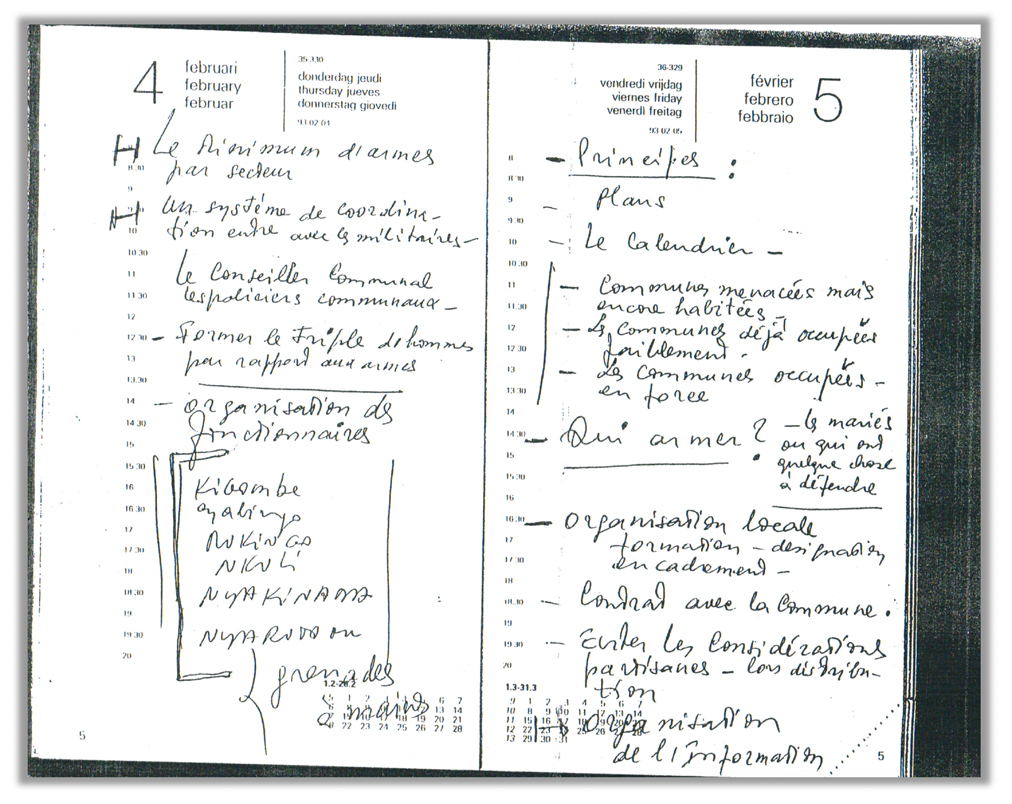 4
februari
february
februar
35-330
donderdag jeudi
thursday jueves
donnerstag giovedi
93 02 04
Le Minimum d'armes
par secteur
8 30
9
Un système de coordina-
tion entre avec les militaires -
10
10 30
Le Conseiller Communal
11
les policiers communaux -
11 30
12
12 30 - Former le triple d'hommes
par rapport aux armes
13
13.30
14 - organisation des
fonctionnaires
14 30
15
15 30
16 Kigombe
16 30 nyabingo
17 NUKINGO
17 30 NKULI
18 NYAKINAMA
18 30
19
19 30
20
grenades
à mains
1.2-28.2
5
36-329
vendredi vrijdag
viernes friday
venerdì freitag
93 02 05
février
febrero
febbraio
5
8 - Principes :
8 30
9 - Plans
9 30
10 - Le Calendrier -
10 30
11 - Communes menacées mais
encore habitées -
11 30
12 - Les communes déjà occupées
faiblement.
12 30
13 - Les communes occupées -
en force
13 30
14
14 30 - Qui armer ? - les mariés
ou qui ont
quelque chose
à défendre
15
15 30
16
16 30 - organisation locale
formation - designation
encadrement -
17
17 30
18
18.30 - Contrat avec la Commune.
19
19.30 - Eviter les Considérations
partisanes - lors distribu-
tion
20
1.3-31.3
organisation
de l'Information
5